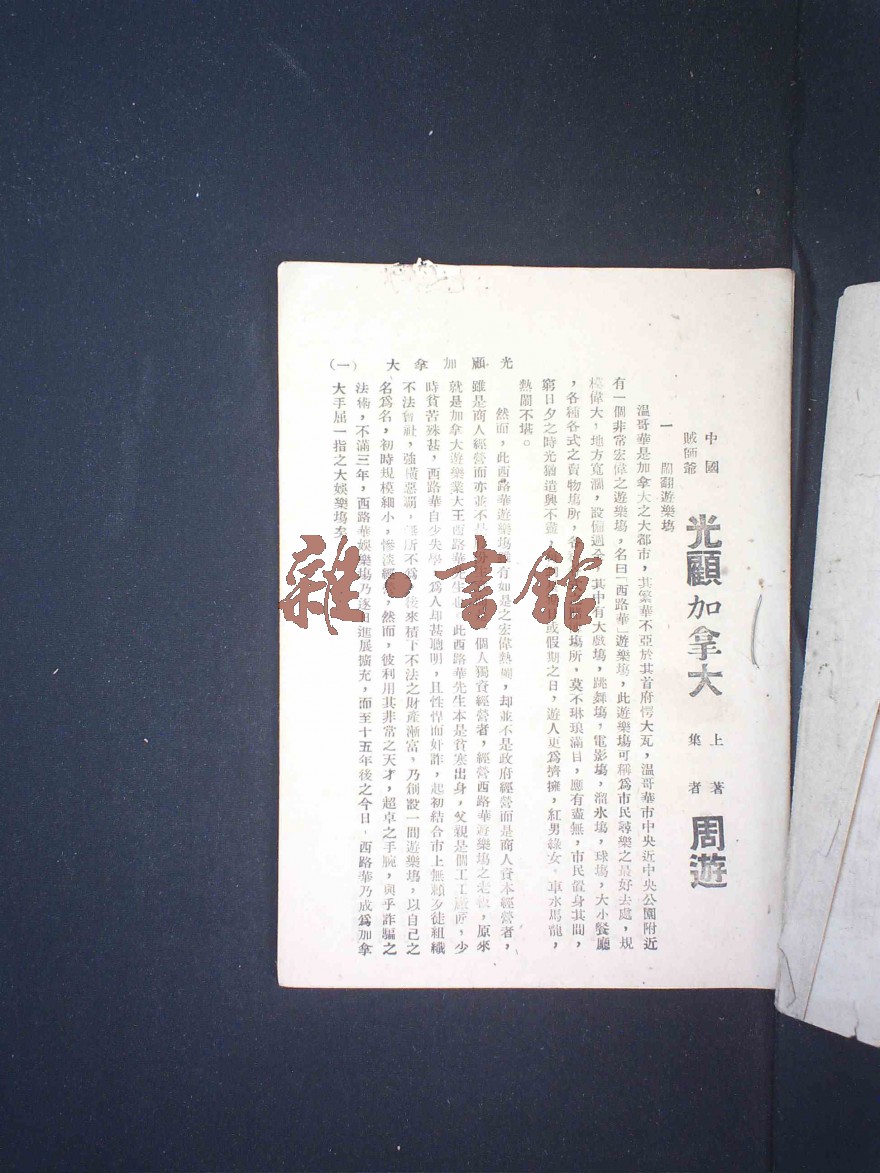 中國
賊師爺
光顧加拿大
上集
著者
周遊
一　鬧翻遊樂塲
溫哥華是加拿大之大都市，其繁華不亞於其首府愕大瓦，溫哥華市中央近中央公園附近
有一個非常宏偉之遊樂塲，名曰「西路華」遊樂塲，此遊樂塲可稱爲市民尋樂之最好去處，規
模偉大，地方寬濶，設備週全，其中有大戲塲，跳舞塲，電影塲，溜氷塲，球塲，大小餐廳
，各種各式之賣物塲所，各塲所，莫不琳琅滿目，應有盡無，市民置身其間，
窮日夕之時光猶遣興不盡，或假期之日，遊人更爲擠擁，紅男綠女，車水馬龍，
熱鬧不堪。
然而，此西路華遊樂塲有如是之宏偉熱鬧，却並不是政府經營而是商人資本經營者，
雖是商人經營而亦並不是個人獨資經營者，經營西路華遊樂塲之老板，原來
就是加拿大遊樂業大王西路華先生也。此西路華先生本是貧寒出身，父親是個工工匠，少
時貧苦殊甚，西路華自少失學，爲人却甚聰明，且性悍而奸詐，起初結合市上無賴歹徒組織
不法會社，強橫惡覇，無所不爲，後來積下不法之財產漸富，乃創設一間遊樂塲，以自己之
名爲名，初時規模細小，慘淡經營，然而，彼利用其非常之天才，超卓之手腕，與乎詐騙之
法術，不滿三年，西路華娛樂塲乃逐日進展擴充，而至十五年後之今日，西路華乃成爲加拿
大手屈一指之大娛樂塲
光顧加拿大
（一）
雜·書館